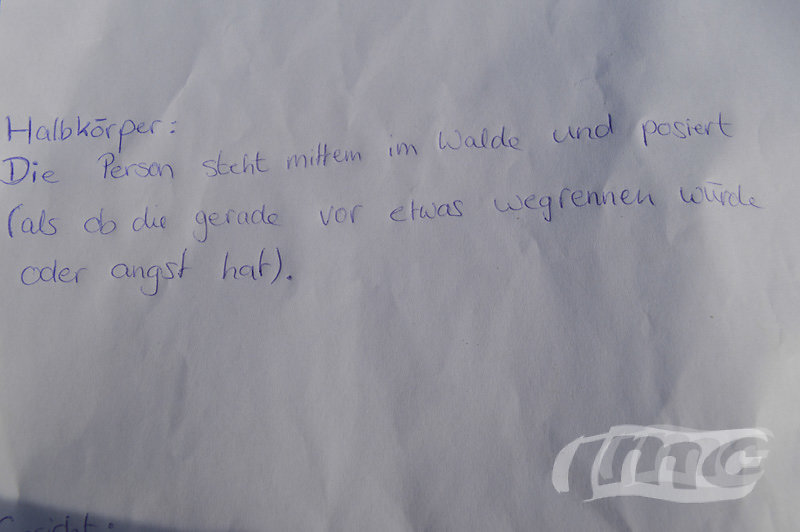 Halbkörper:
Die Person steht mittem im Walde und posiert
(als ob die gerade vor etwas wegrennen würde
oder angst hat).
Gesicht:
nmc